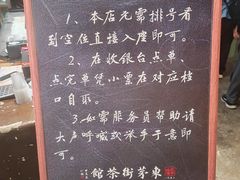 1、本店无需排号看
到空位直接入座即可。
2、在收银台点单、
点完单凭小票在对应桂
口自取。
3、如需服务员帮助请
大声呼喊或举手示意即
可。
東茅街茶館